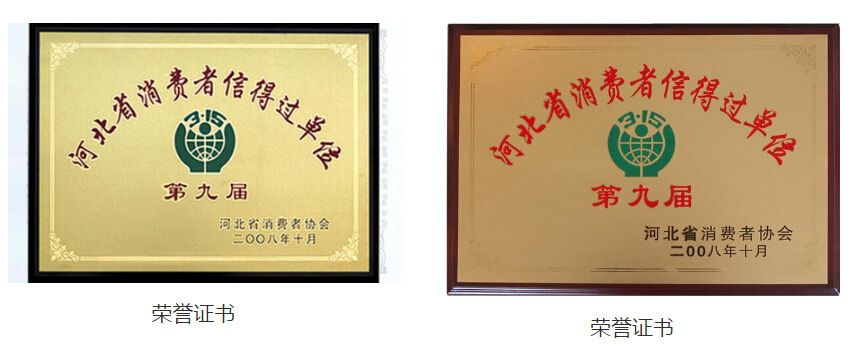 河北省消费者信得过单位
3·15
第九届
河北省消费者协会
二〇〇八年十月
荣誉证书
河北省消费者信得过单位
3·15
第九届
河北省消费者协会
二00八年十月
荣誉证书